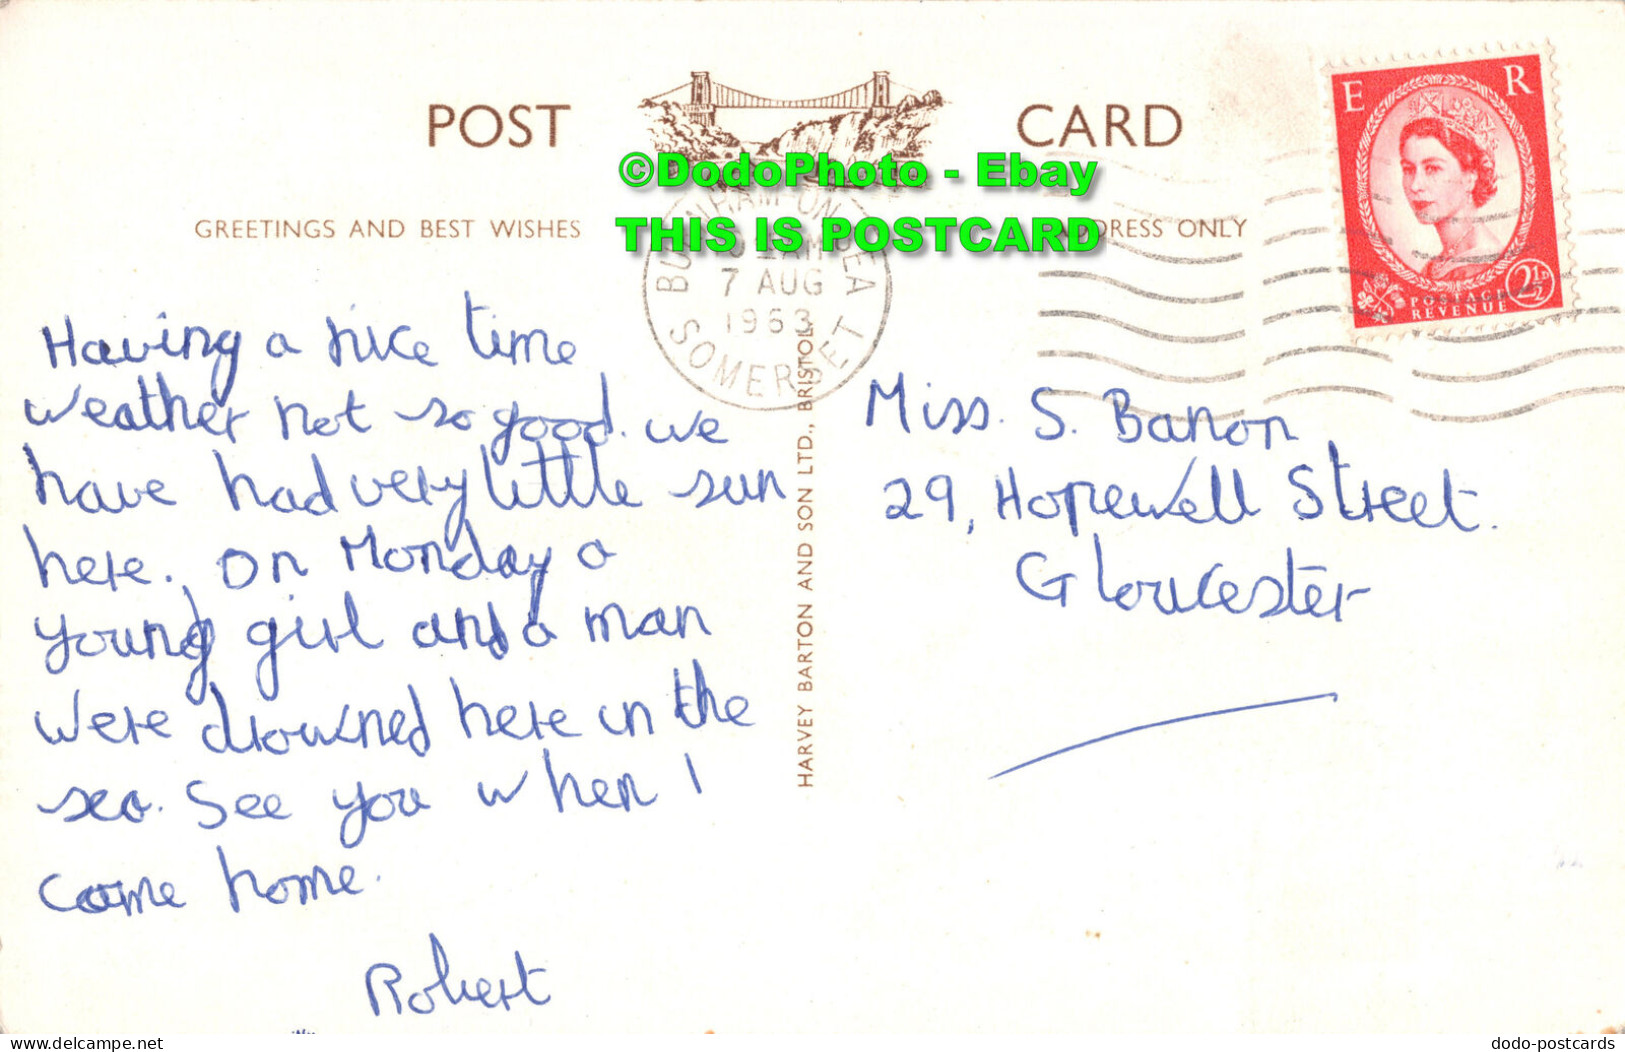 POST CARD
©DodoPhoto - Ebay
THIS IS POSTCARD
GREETINGS AND BEST WISHES
ADDRESS ONLY
BURNHAM-ON-SEA
7 AUG
1963
SOMERSET
E R
POSTAGE 2½D
REVENUE
Having a nice time
weather not so good. we
have had very little sun
here. On Monday a
young girl and a man
were drowned here in the
sea. See you when I
come home.
Robert
HARVEY BARTON AND SON LTD., BRISTOL
Miss. S. Barron
29, Hopewell Street.
Gloucester
delcampe.net
dodo-postcards